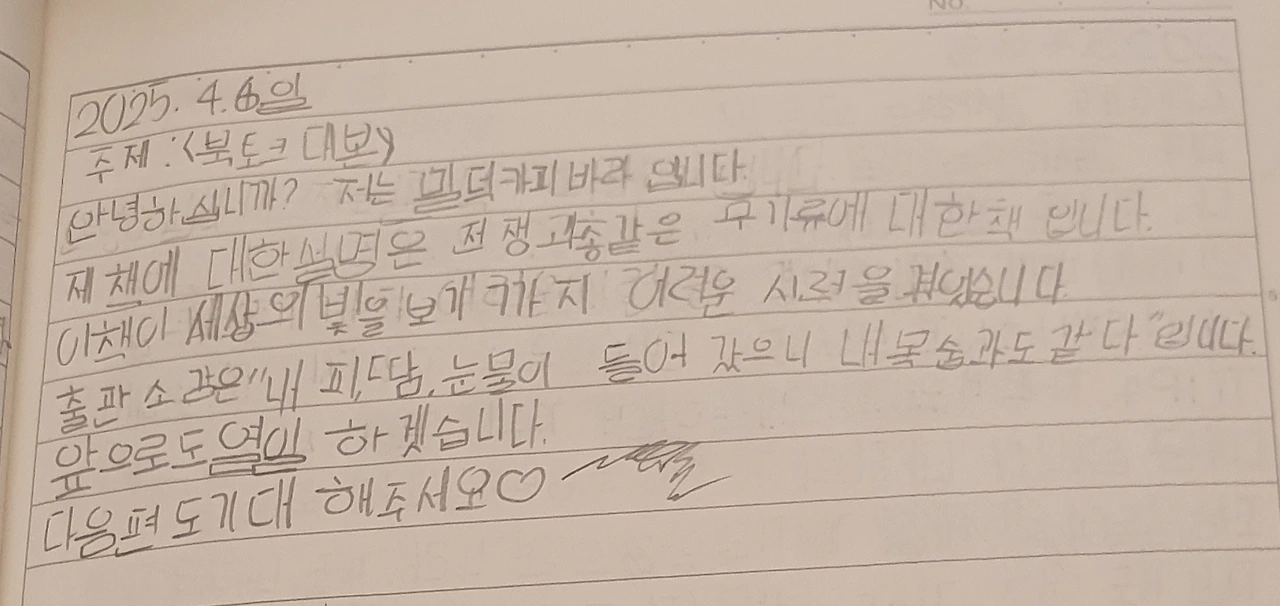 No.
2025. 4. 6일
주제 : <북토크 대본>
안녕하십니까? 저는 밀덕카피바라 입니다.
제 책에 대한설명은 전쟁과 총같은 무기류에 대한책 입니다.
이책이 세상의 빛을 보기 까지 어려운 시련을 겪었습니다
출판 소감은 "내 피, 땀, 눈물이 들어 갔으니 내목숨과도 같다" 입니다.
앞으로도 열일 하겠습니다.
다음편도기대 해주세요♡